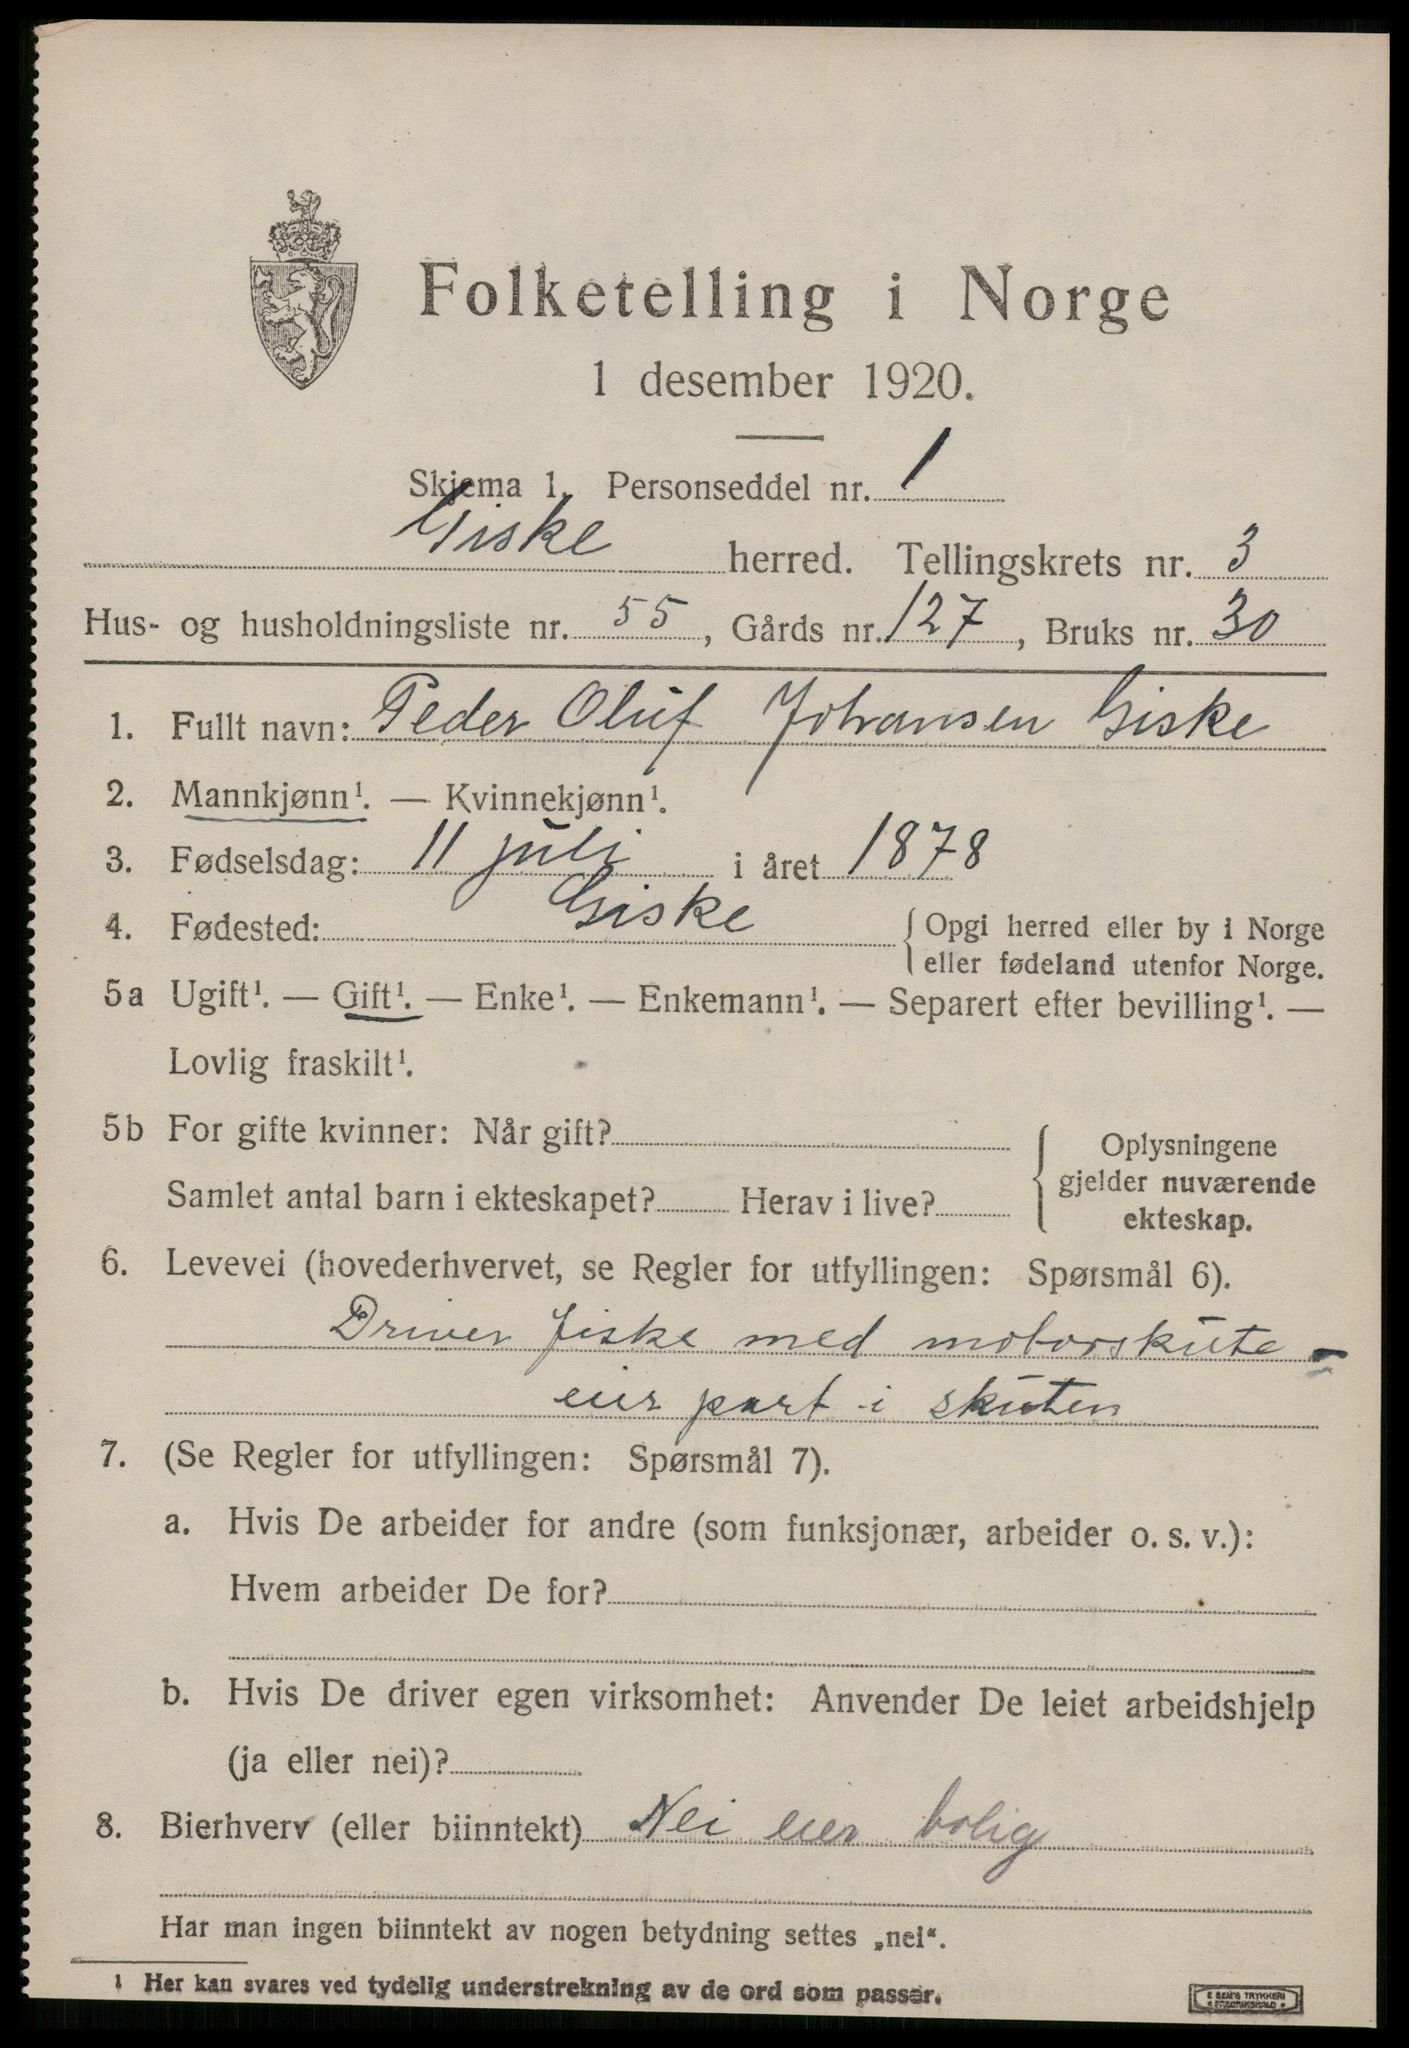 Folketelling i Norge
1 desember 1920.
Skjema 1. Personseddel nr. 1
Giske herred. Tellingskrets nr. 3
Hus- og husholdningsliste nr. 55, Gårds nr. 127, Bruks nr. 30
1. Fullt navn: Peder Oluf Johansen Giske
2. Mannkjønn¹. — Kvinnekjønn¹.
3. Fødselsdag: 11 juli i året 1878
4. Fødested: Giske { Opgi herred eller by i Norge
eller fødeland utenfor Norge.
5a Ugift¹. — Gift¹. — Enke¹. — Enkemann¹. — Separert efter bevilling¹. —
Lovlig fraskilt¹.
5b For gifte kvinner: Når gift? { Oplysningene
gjelder nuværende
Samlet antal barn i ekteskapet? Herav i live? ekteskap.
6. Levevei (hovederhvervet, se Regler for utfyllingen: Spørsmål 6).
Driver fiske med motorskute -
eier part i skuten
7. (Se Regler for utfyllingen: Spørsmål 7).
a. Hvis De arbeider for andre (som funksjonær, arbeider o. s. v.):
Hvem arbeider De for?
b. Hvis De driver egen virksomhet: Anvender De leiet arbeidshjelp
(ja eller nei)?
8. Bierhverv (eller biinntekt) Nei eier bolig
Har man ingen biinntekt av nogen betydning settes „nei“.
1 Her kan svares ved tydelig understrekning av de ord som passer.
E SEM'S TRYKKERI
FREDRIKSHALD